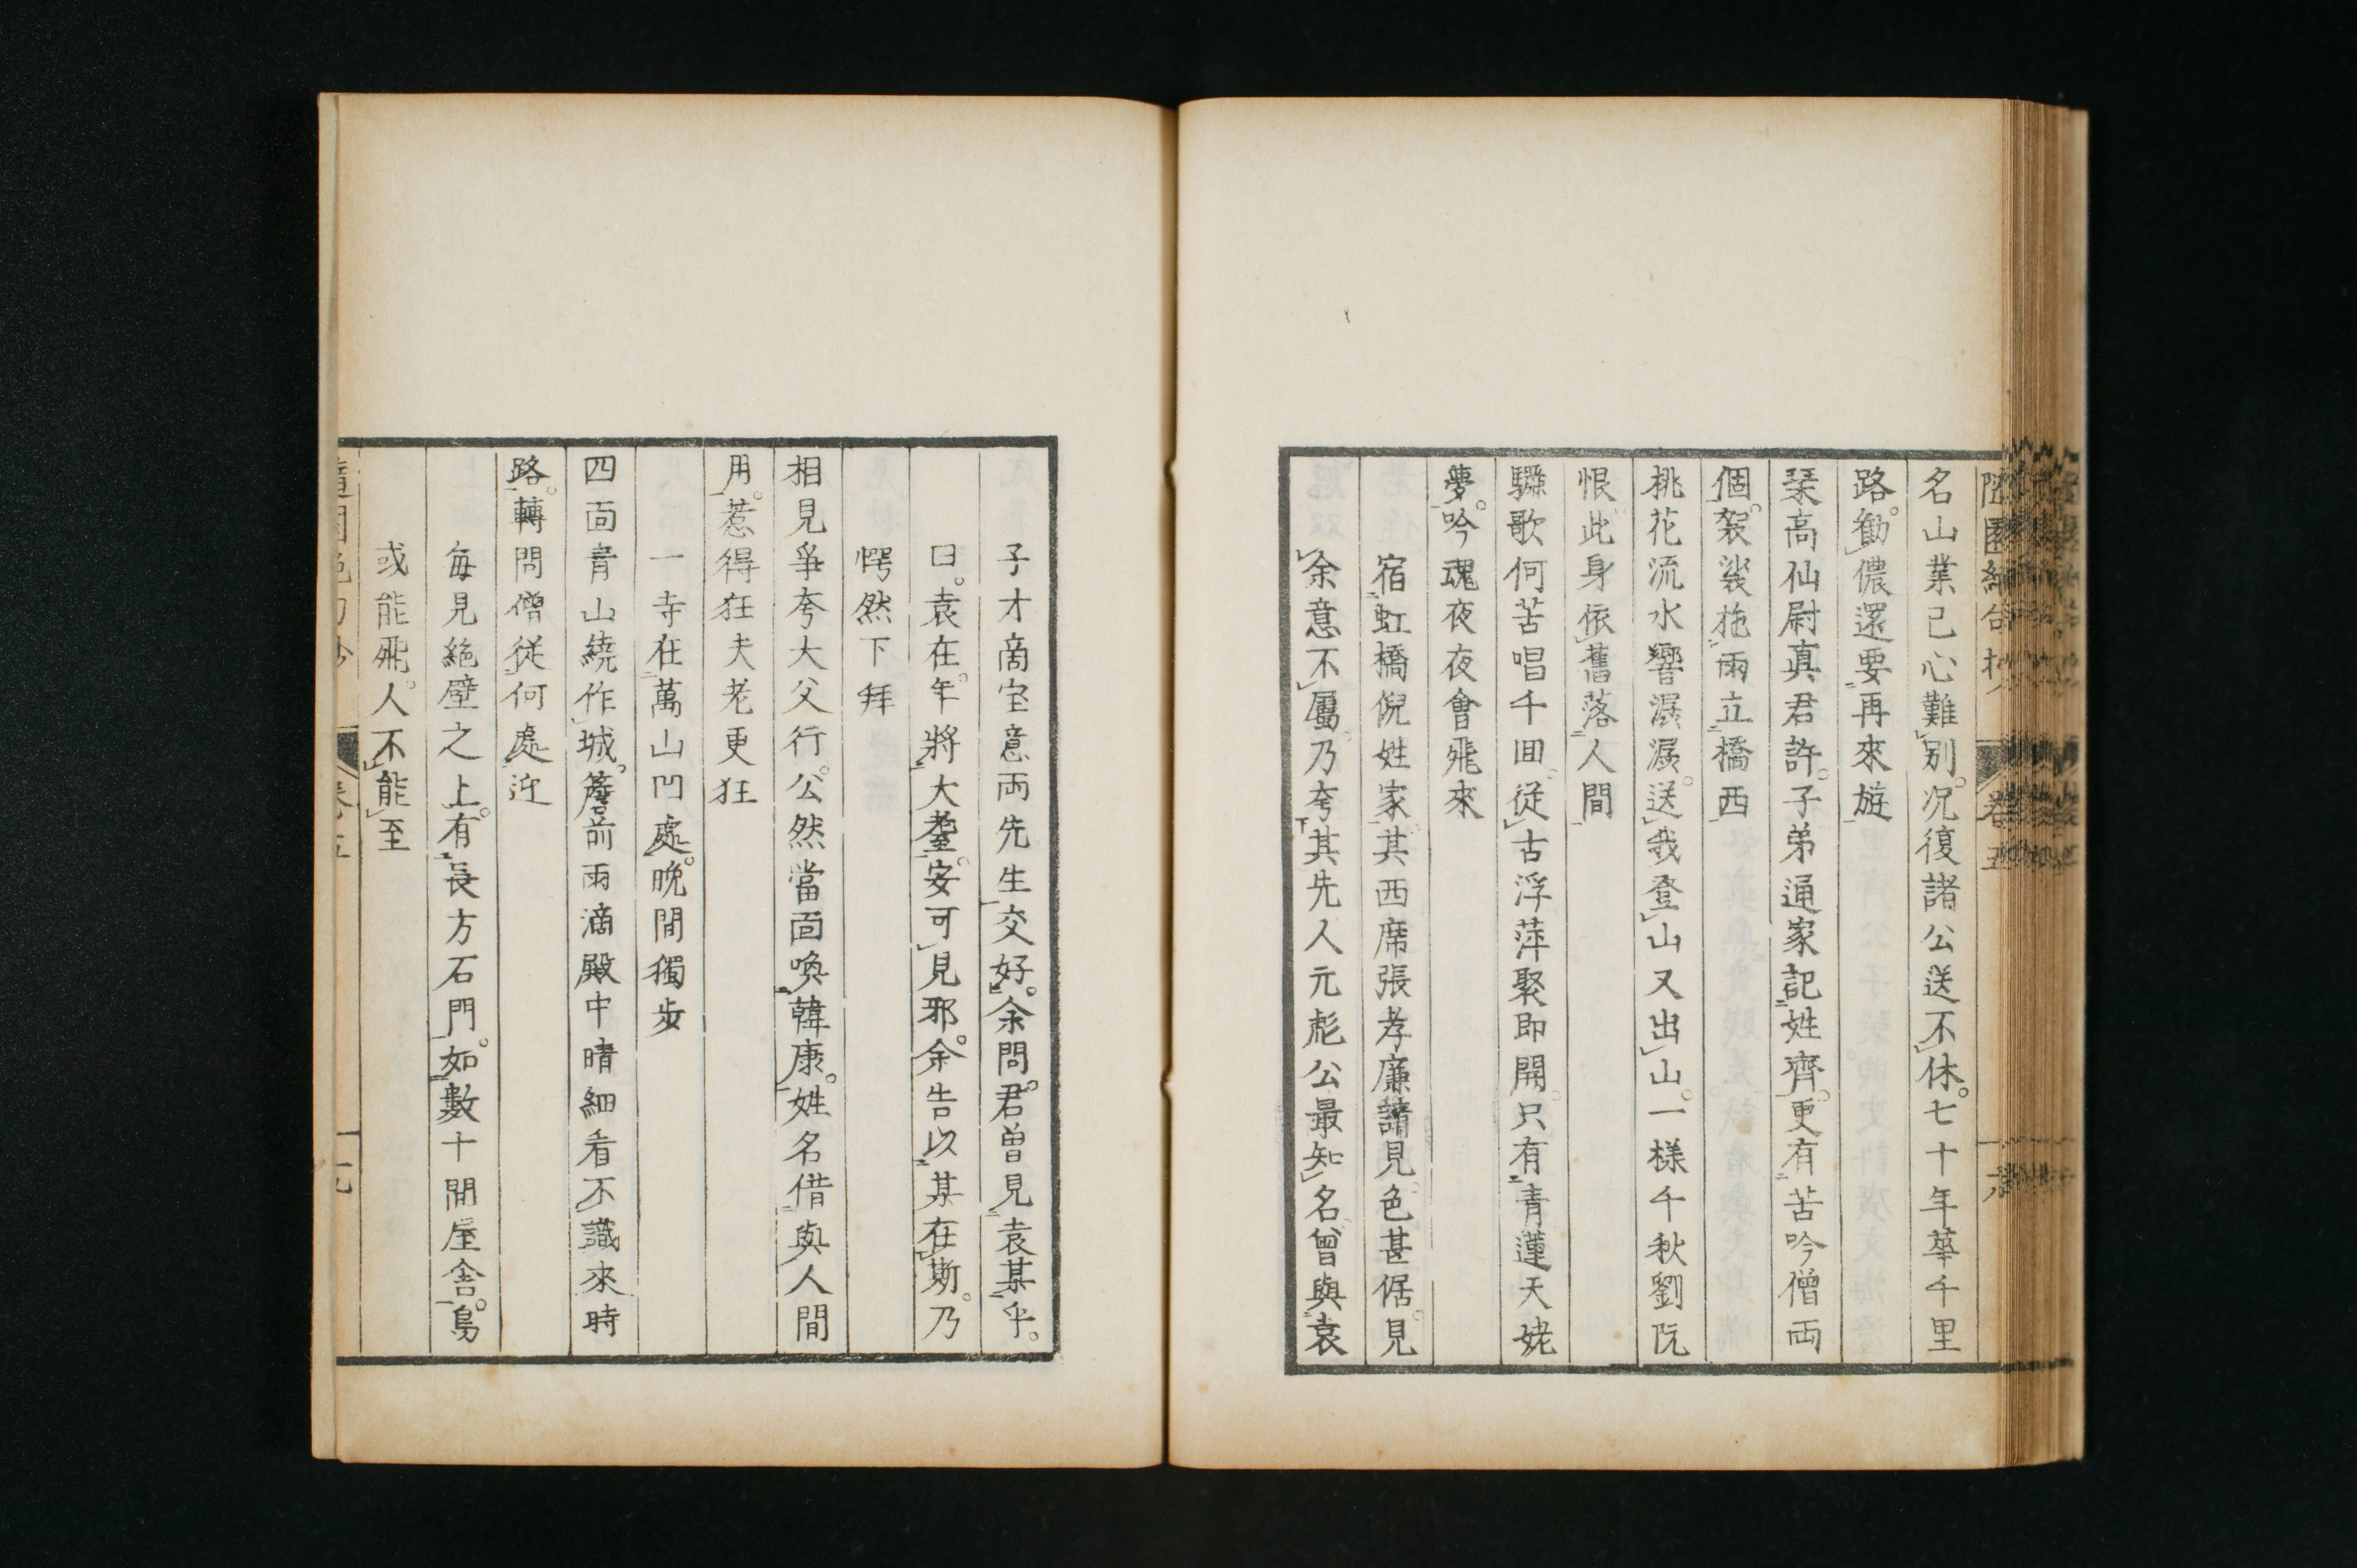 隨園絕句抄 卷五
名山業已心難別。况復諸公送不休。七十年華千里
路。勸儂還要再來遊
琹高仙尉真君許。子弟通家記姓齊。更有苦吟僧両
個。袈裟拖雨立橋西
桃花流水響潺潺。送我登山又出山。一樣千秋劉阮
恨。此身依舊落人間
驪歌何苦唱千回。從古浮萍聚即開。只有青蓮天姥
夢。吟魂夜夜會飛來
宿虹橋倪姓家。其西席張孝廉請見。色甚倨。見
余意不屬。乃夸其先人元彪公最知名。曾與袁
子才啇宝意両先生交好。余問。君曽見袁某乎。
曰。袁在。年將大耋。安可見邪。余告以某在斯。乃
愕然下拜
相見爭夸大父行。公然當面喚韓康。姓名借與人間
用。惹得狂夫老更狂
一寺在萬山凹處。晚間獨步
四面青山繞作城。簷前雨滴殿中晴細看不識來時
路。轉問僧從何處迎
每見絕壁之上。有長方石門。如數十間屋舎。鳥
或能飛。人不能至
卷五